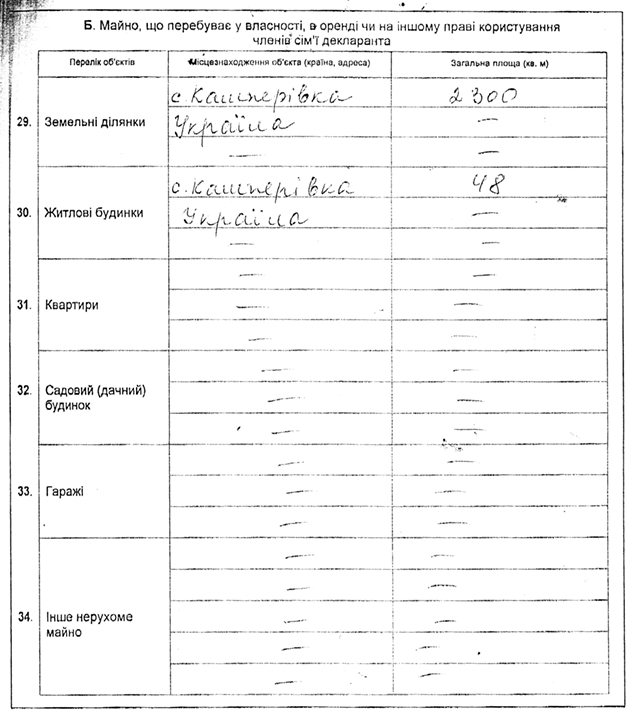 Б. Майно, що перебуває у власності, в оренді чи на іншому праві користування
членів сім'ї декларанта
Перелік об'єктів
Місцезнаходження об'єкта (країна, адреса)
Загальна площа (кв. м)
29. Земельні ділянки
с. Кашперівка
2300
Україна
—
—
—
30. Житлові будинки
с. Кашперівка
48
Україна
—
—
—
31. Квартири
—
—
—
—
—
—
32. Садовий (дачний)
будинок
—
—
—
—
—
—
33. Гаражі
—
—
—
—
—
—
34. Інше нерухоме
майно
—
—
—
—
—
—
—
—
—
—